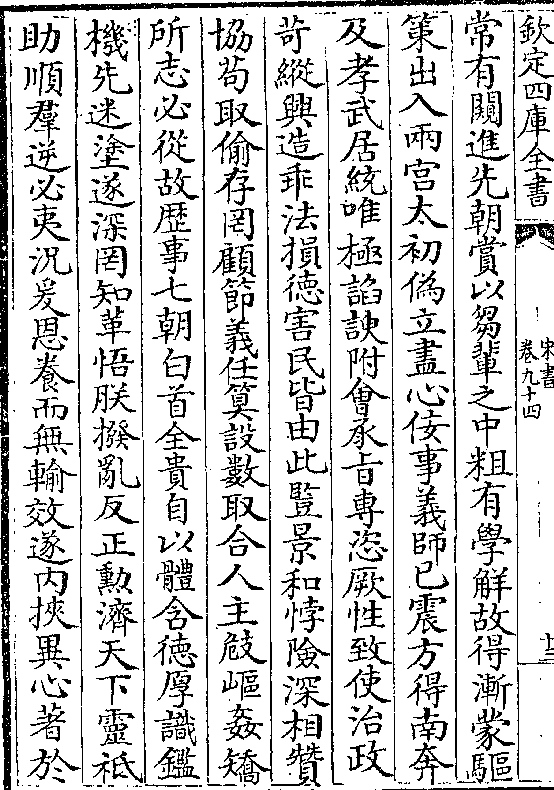 欽定四庫全書
宋書
卷九十四
常有關進先朝賞以芻輩之中粗有學解故得漸蒙驅
策出入兩宮太初偽立盡心佞事義師已震方得南奔
及孝武居統唯極諂諛附會承旨專恣厥性致使治政
苛縱興造乖法損德害民皆由此豎景和悖險深相贊
協茍取偷存罔顧節義任算設數取合人主㱿嶇姦矯
所志必從故歴事七朝白首全貴自以體含德厚識鑑
機先迷塗遂深罔知革悟朕撥亂反正勲濟天下靈祗
助順羣逆必夷況爰恩養而無輸效遂内挾異心著於